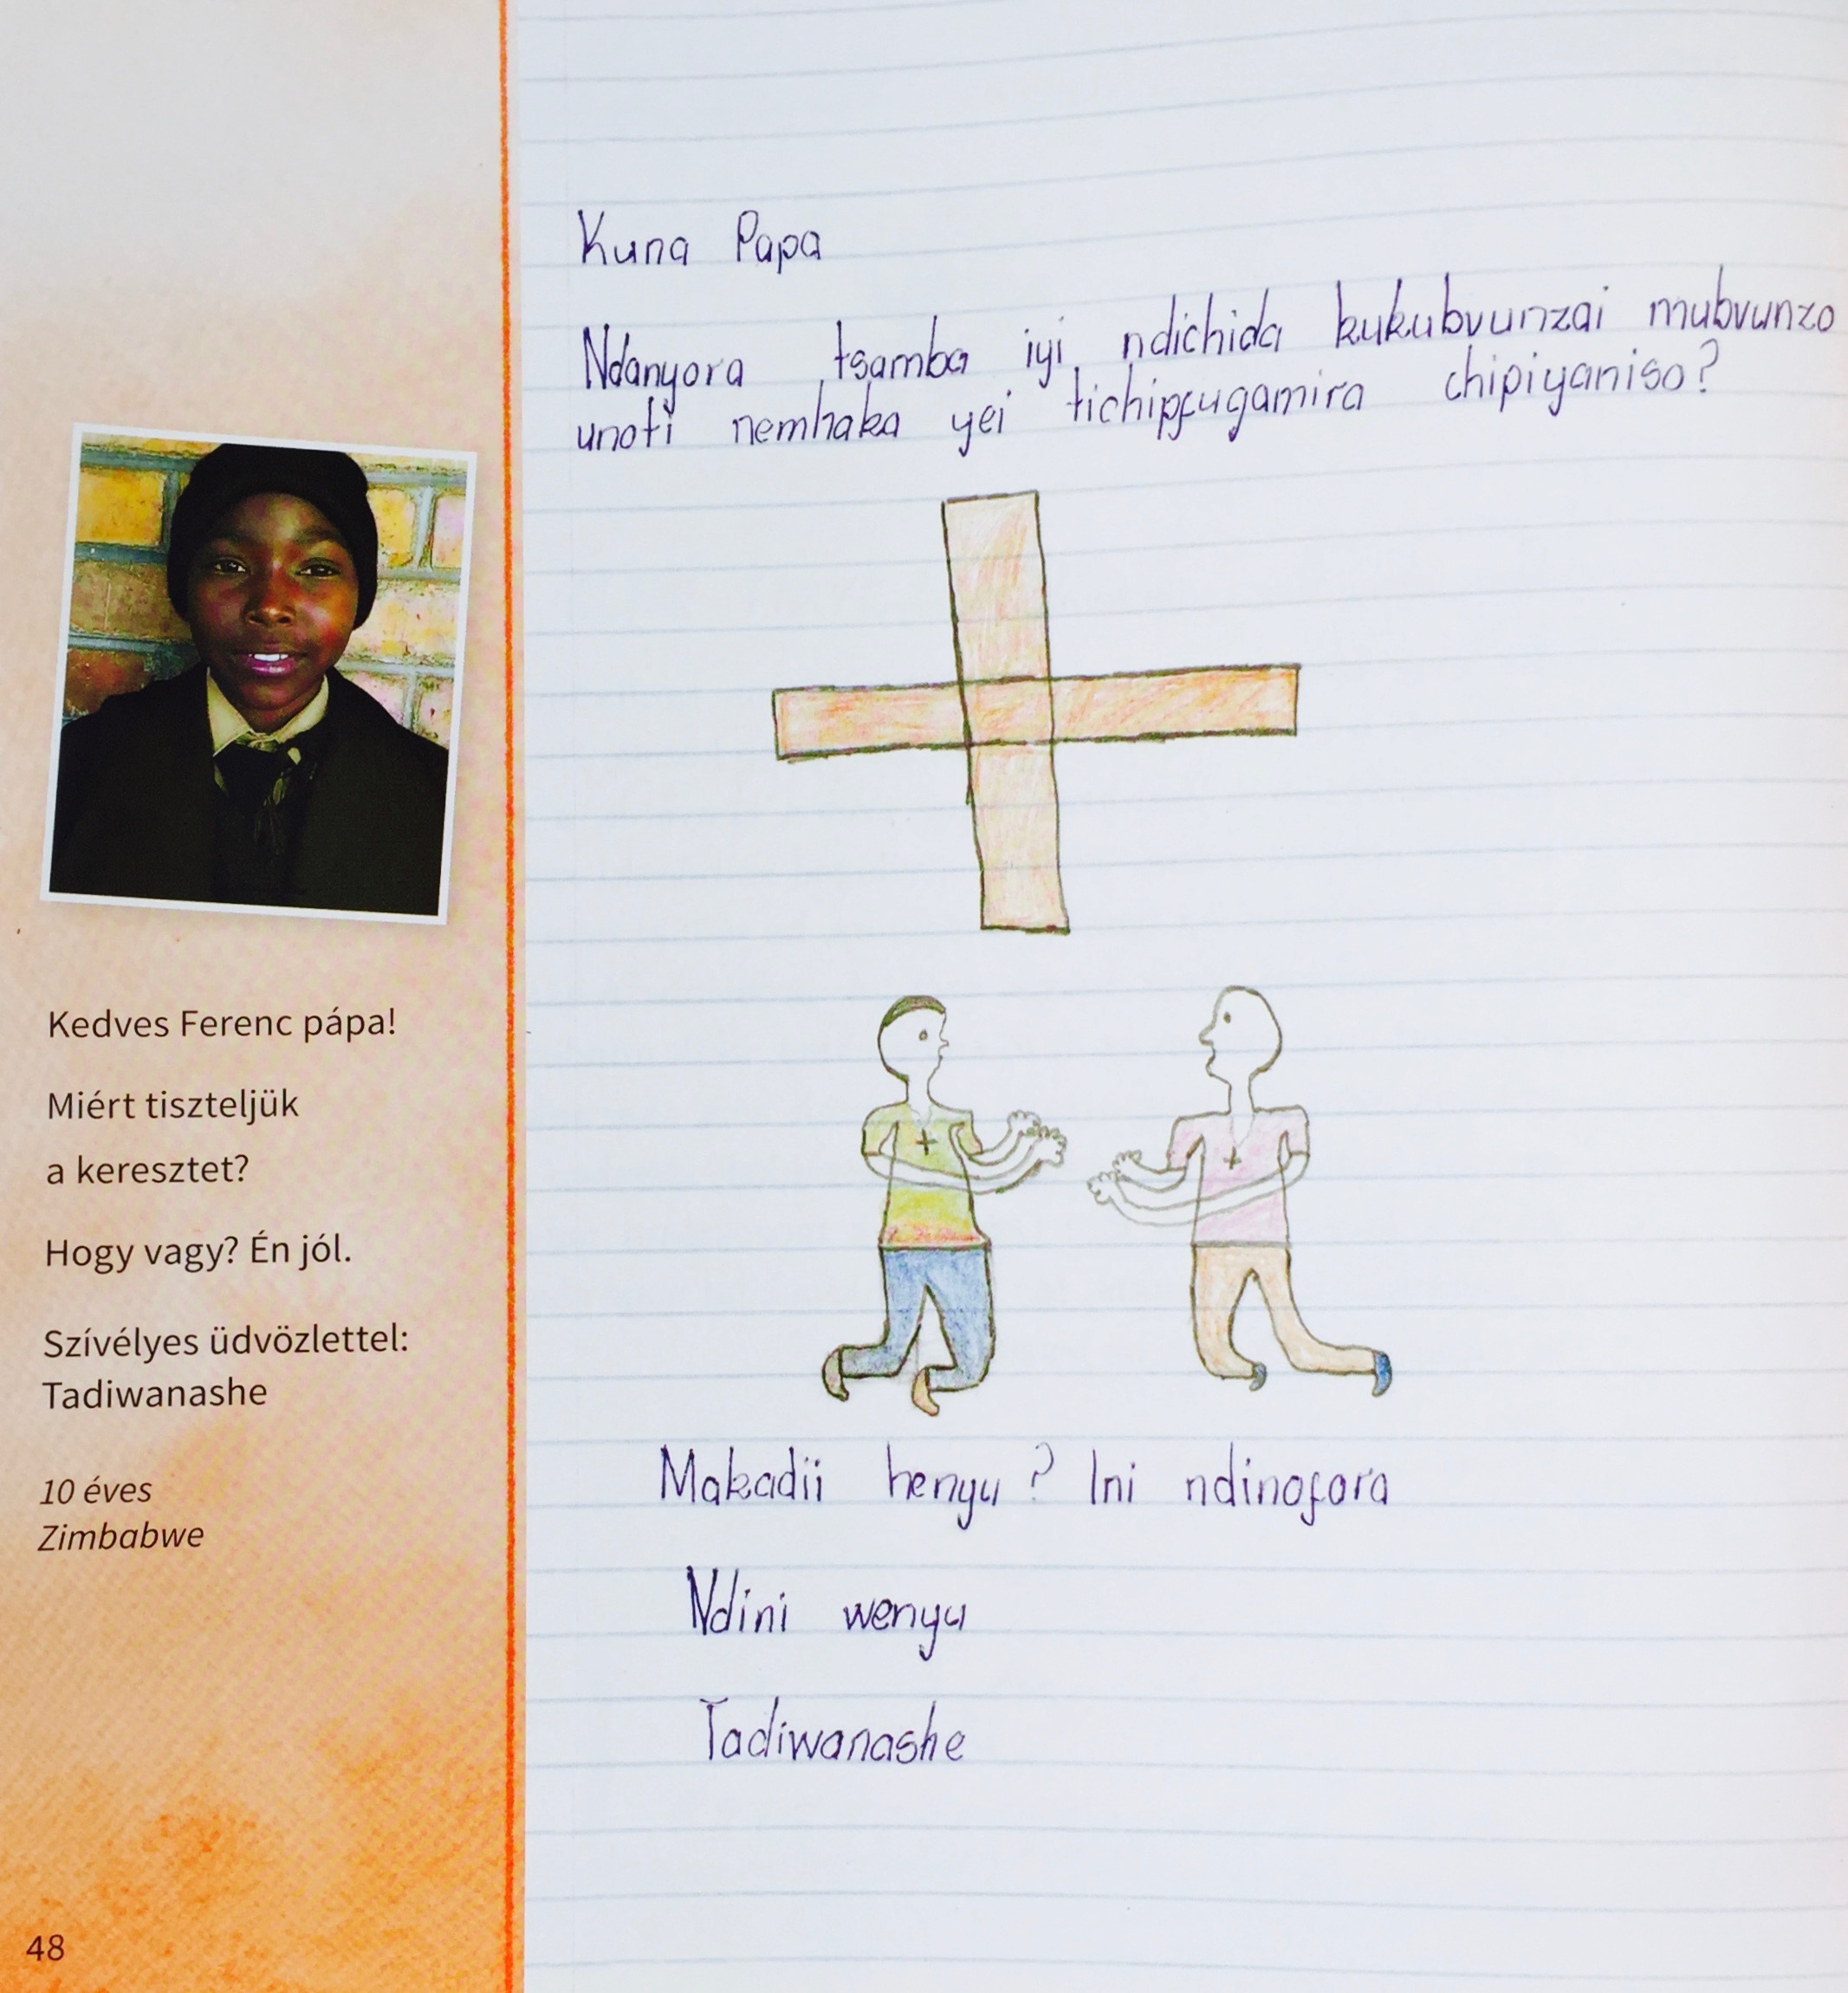 Kuna Papa
Ndanyora tsamba iyi ndichida kukubvunzai mubvunzo
unoti nemhaka yei tichipfugamira chipiyaniso?
Makadii henyu? Ini ndinofara
Ndini wenyu
Tadiwanashe
Kedves Ferenc pápa!
Miért tiszteljük
a keresztet?
Hogy vagy? Én jól.
Szívélyes üdvözlettel:
Tadiwanashe
10 éves
Zimbabwe
48